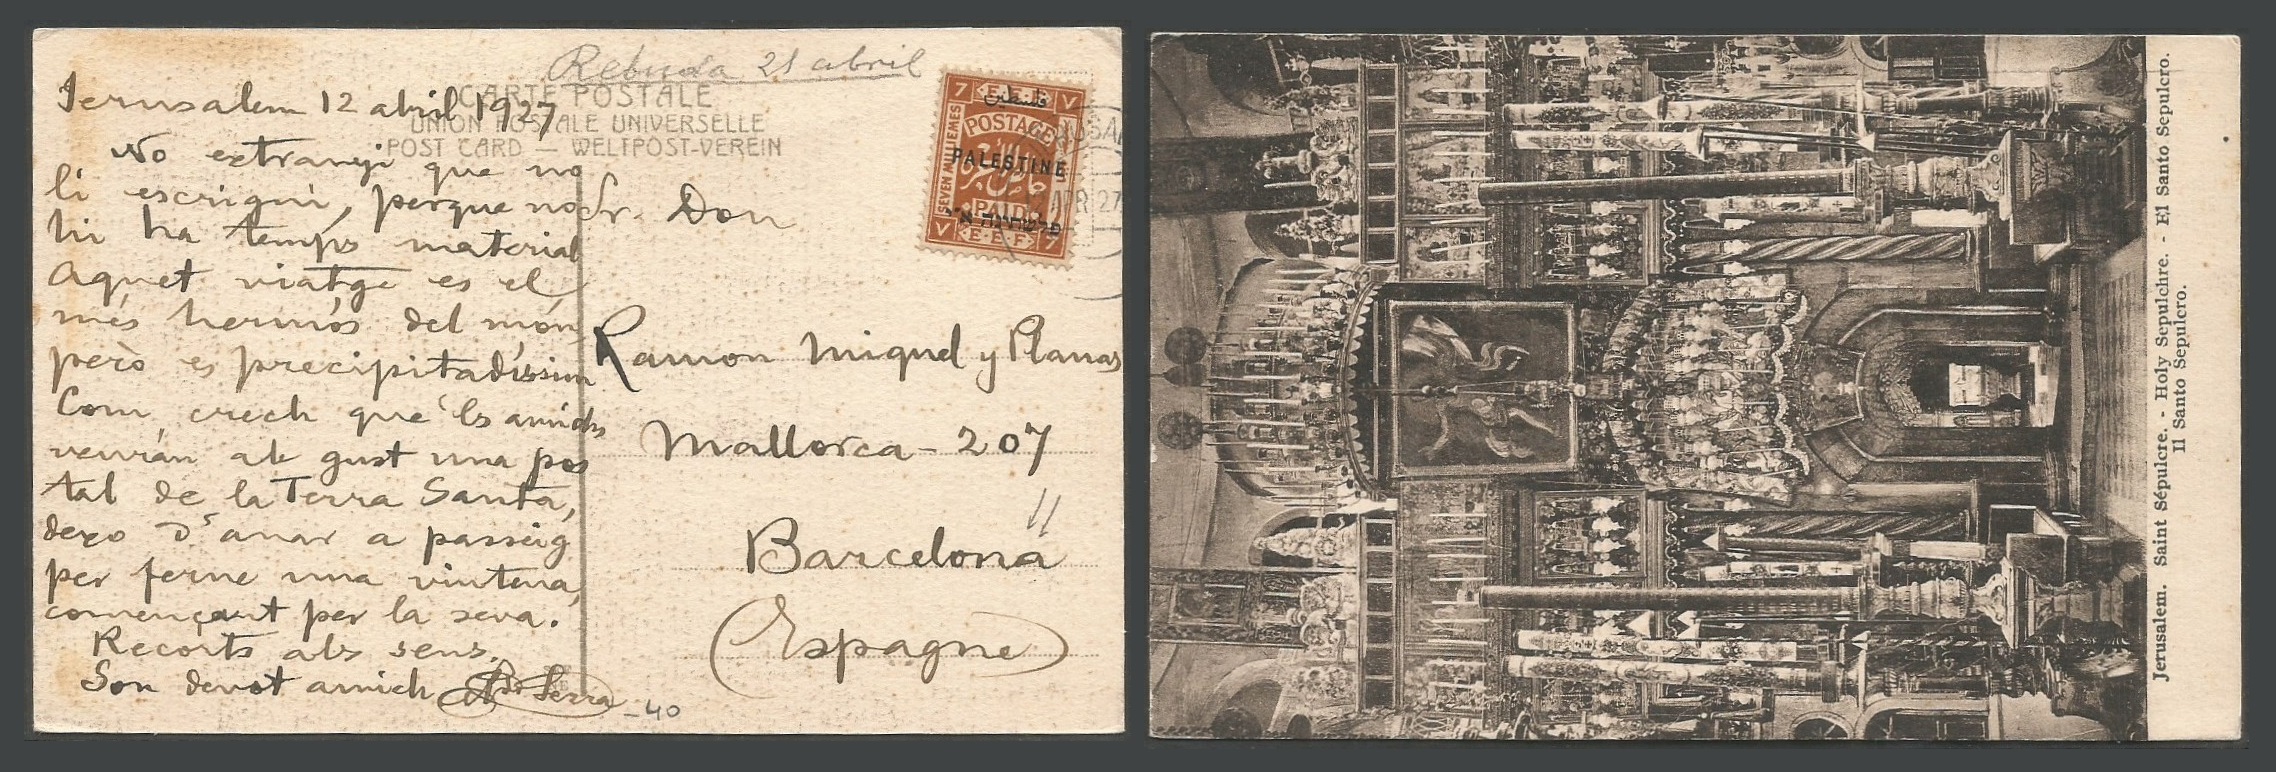 Rebuda 21 abril
CARTE POSTALE
UNION POSTALE UNIVERSELLE
POST CARD — WELTPOST-VEREIN
Jerusalem 12 abril 1927
No extranyi que no
li escrigui, perque no
hi ha temps material
Aquet viatge es el
més hermós del món
però es precipitadíssim
Com crech que 'ls amichs
veurán ab gust una pos
tal de la Terra Santa,
dexo d'anar a passeig
per ferne una vintena,
començant per la seva.
Recorts als seus.
Son devot amich
Serra
-40
Sr. Don
Ramon Miquel y Planas
Mallorca - 207
Barcelona
(Espagne)
7 E.E.F. 7
فلسطين
POSTAGE
PALESTINE
SEVEN MILLIEMES
PAID
פלשתינה א״י
E.E.F. 7
APR 27
Jerusalem. Saint Sépulcre. - Holy Sepulchre. - El Santo Sepulcro.
Il Santo Sepulcro.